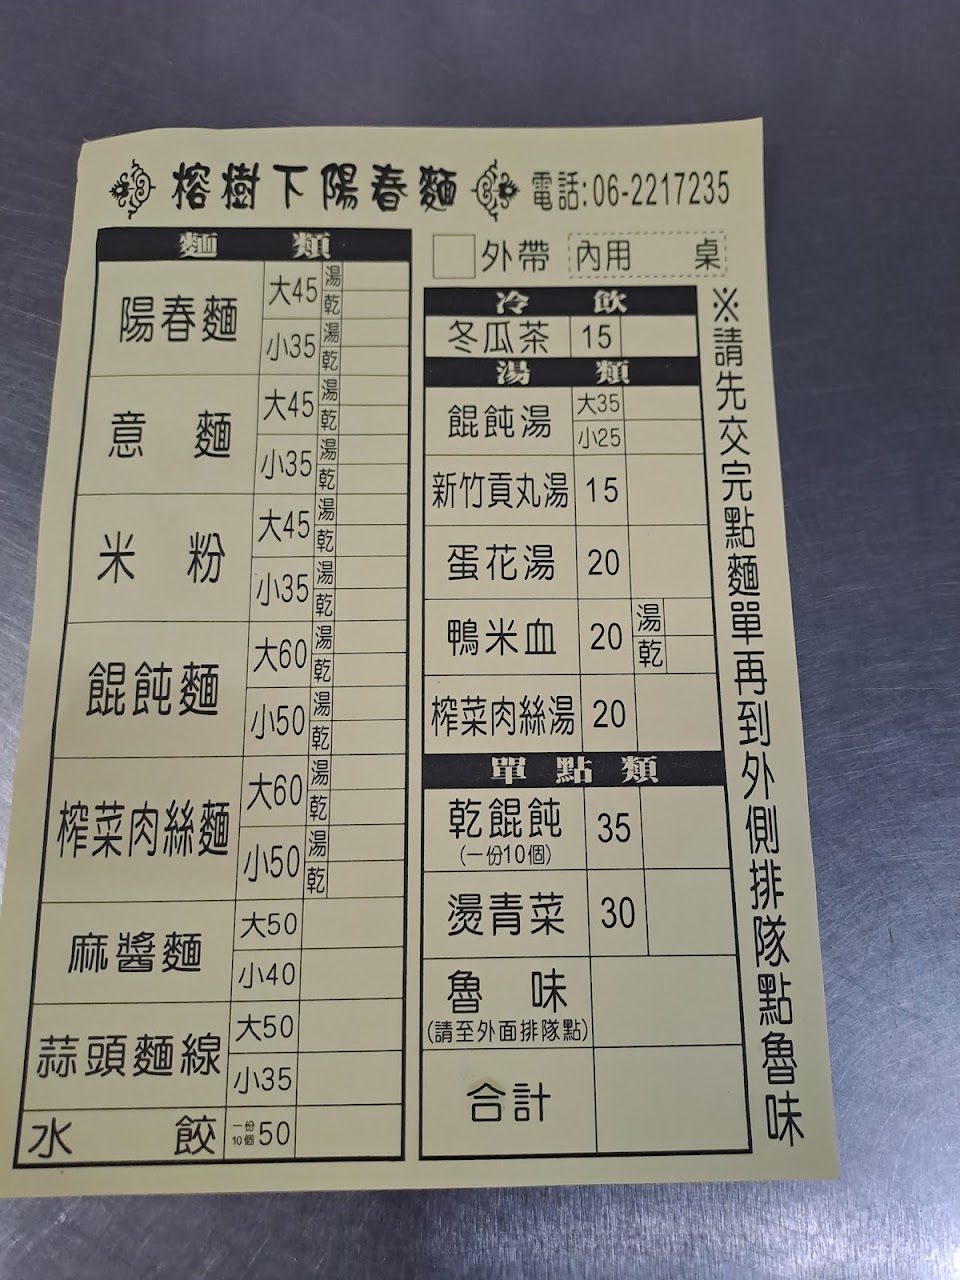 榕樹下陽春麵 電話:06-2217235
麵 類
陽春麵 大45 湯
乾
小35 湯
乾
意 麵 大45 湯
乾
小35 湯
乾
米 粉 大45 湯
乾
小35 湯
乾
餛飩麵 大60 湯
乾
小50 湯
乾
榨菜肉絲麵 大60 湯
乾
小50 湯
乾
麻醬麵 大50
小40
蒜頭麵線 大50
小35
水 餃 一份10個 50
外帶 內用 桌
冷 飲
冬瓜茶 15
湯 類
餛飩湯 大35
小25
新竹貢丸湯 15
蛋花湯 20
鴨米血 20 湯
乾
榨菜肉絲湯 20
單 點 類
乾餛飩 35
(一份10個)
燙青菜 30
魯 味
(請至外面排隊點)
合計
※請先交完點麵單再到外側排隊點魯味